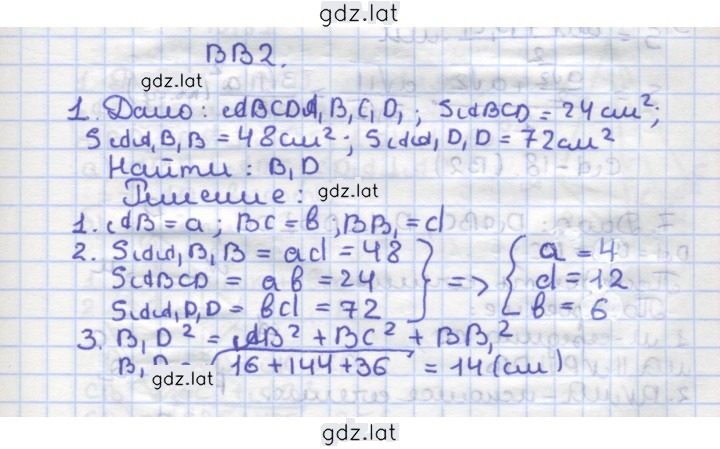 gdz.lat
BB2.
gdz.lat
1. Дано: ABCDA₁B₁C₁D₁; SABCD = 24 см²;
SAA₁B₁B = 48 см²; SAA₁D₁D = 72 см²
Найти: B₁D
Решение: gdz.lat
1. AB = a; BC = b; BB₁ = d
2. SAA₁B₁B = ad = 48
SABCD = ab = 24
SAA₁D₁D = bd = 72
=> a = 4
d = 12
b = 6
3. B₁D² = AB² + BC² + BB₁²
B₁D = √16+144+36 = 14 (см)
gdz.lat
gdz.lat